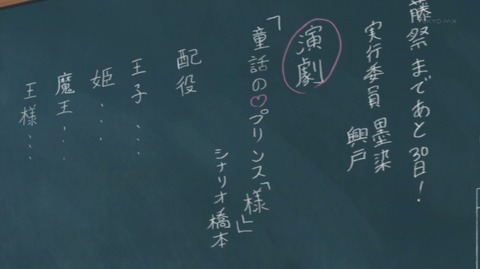 藤祭まであと30日!
実行委員 墨染
興戸
演劇
「童話の♡プリンス「様」」
シナリオ橋本
配役
王子...
姫...
魔王...
王様...
TOKYO MX